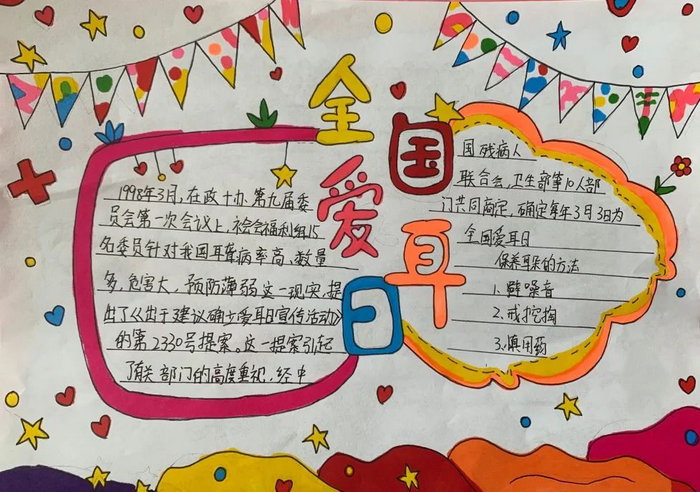 全国爱耳日
1998年3月，在政十办.第九届委
员会第一次会议上，社会福利组15
名委员针对我国耳聋病率高、数量
多，危害大，预防薄弱这一现实，提
出了《出于建议确立爱耳日宣传活动》
的第2330号提案。这一提案引起
了有关部门的高度重视，经中
国残病人
联合会，卫生部第10人部
门共同商定，确定每年3月3日为
全国爱耳日
保养耳朵的方法
1.避噪音
2.戒挖掏
3.慎用药